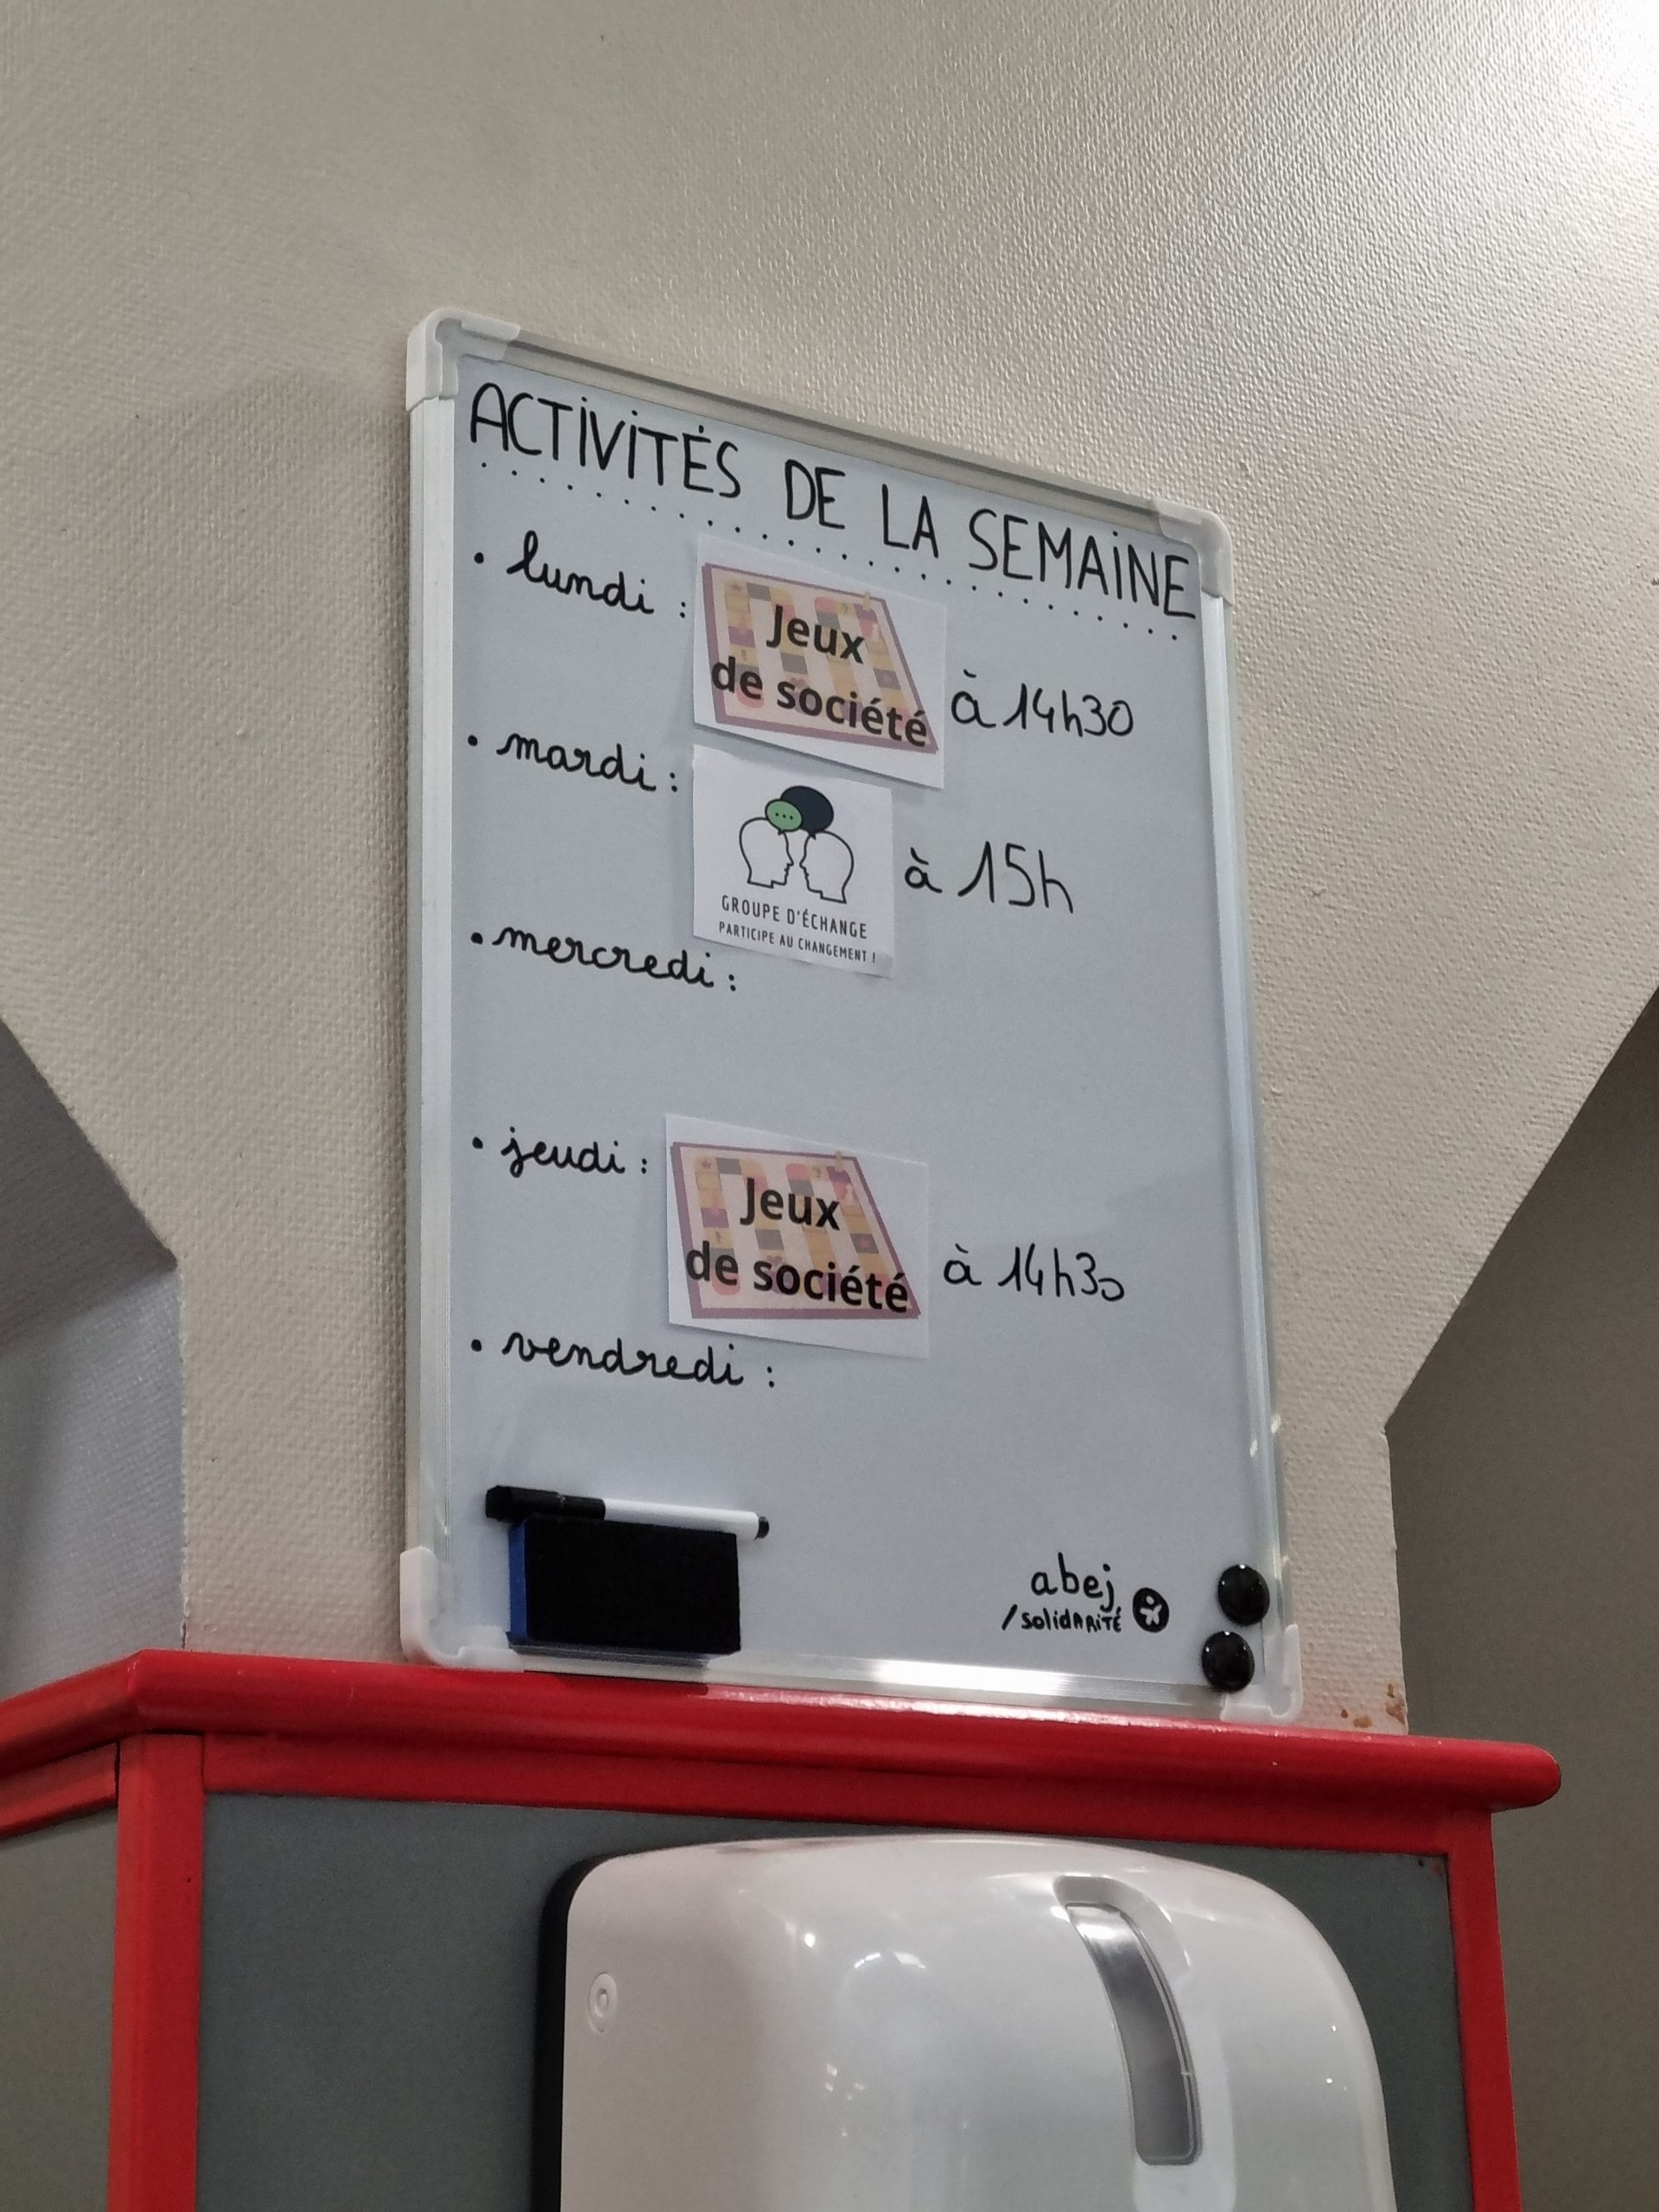 ACTIVITÉS DE LA SEMAINE
• lundi :
Jeux
de société
à 14h30
• mardi :
GROUPE D'ÉCHANGE
PARTICIPE AU CHANGEMENT !
à 15h
• mercredi :
• jeudi :
Jeux
de société
à 14h30
• vendredi :
abej
/ solidARiTÉ